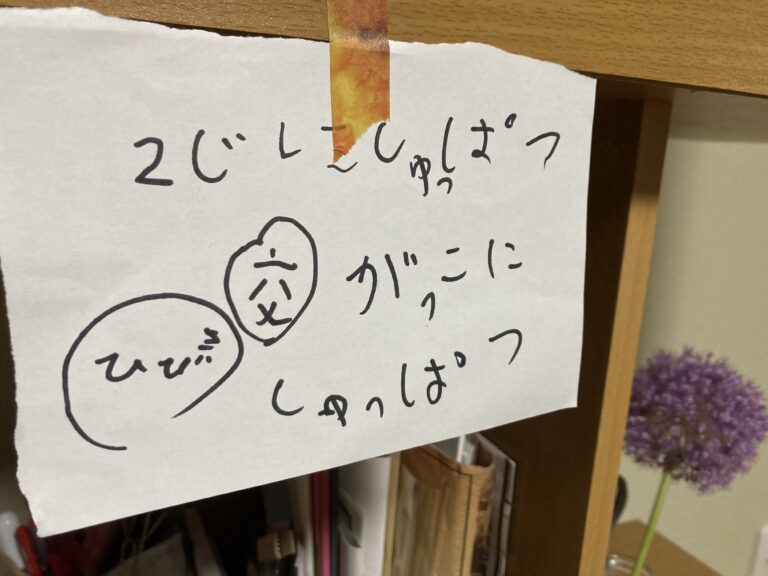 2じにしゅっぱつ
交 がっこに
ひびき
しゅっぱつ